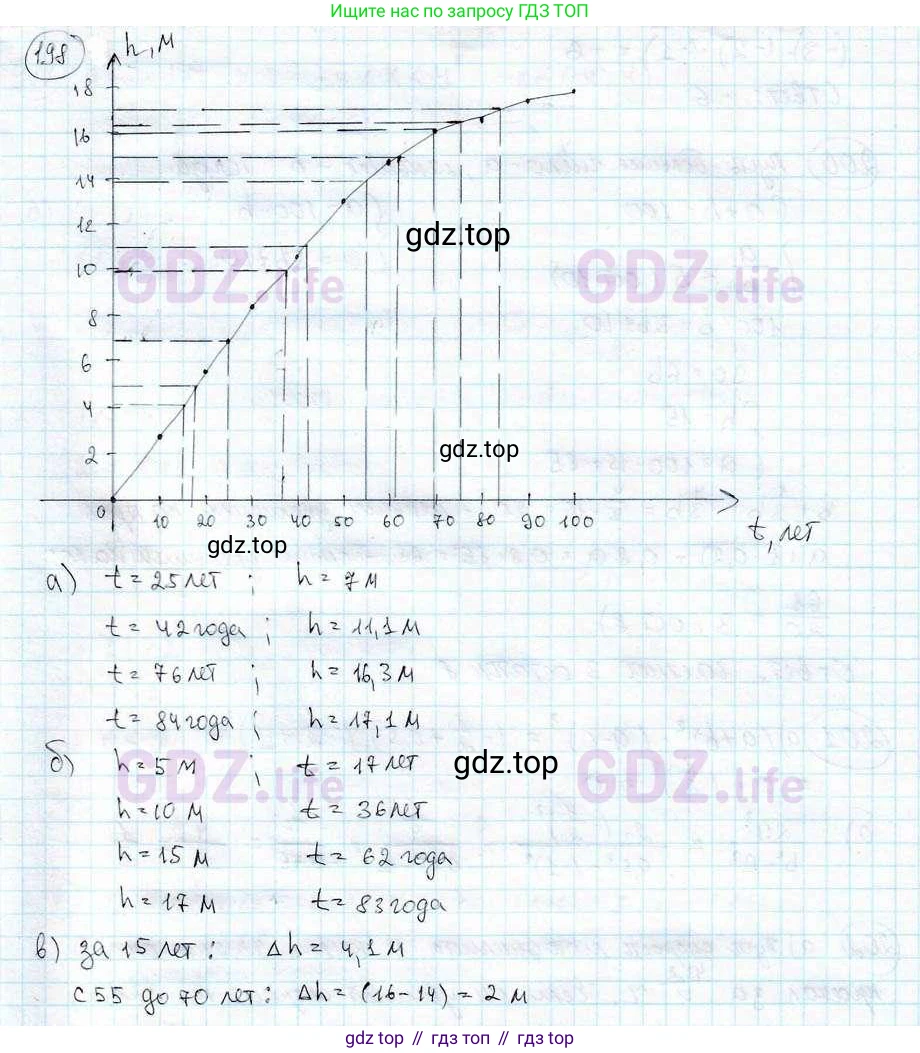 Ищите нас по запросу ГДЗ ТОП
198
h, м
18
16
14
gdz.top
12
10
GDZ.life GDZ.life
8
6
4
gdz.top
2
0 10 20 30 40 50 60 70 80 90 100
t, лет
gdz.top
а) t = 25 лет ; h = 7 м
t = 42 года ; h = 11,1 м
t = 76 лет ; h = 16,3 м
t = 84 года ; h = 17,1 м
б) h = 5 м ; t = 17 лет
gdz.top
GDZ.life GDZ.life
h = 10 м t = 36 лет
h = 15 м t = 62 года
h = 17 м t = 83 года
в) за 15 лет: Δh = 4,1 м
с 55 до 70 лет: Δh = (16-14) = 2 м
gdz top // гдз топ // гдз.top